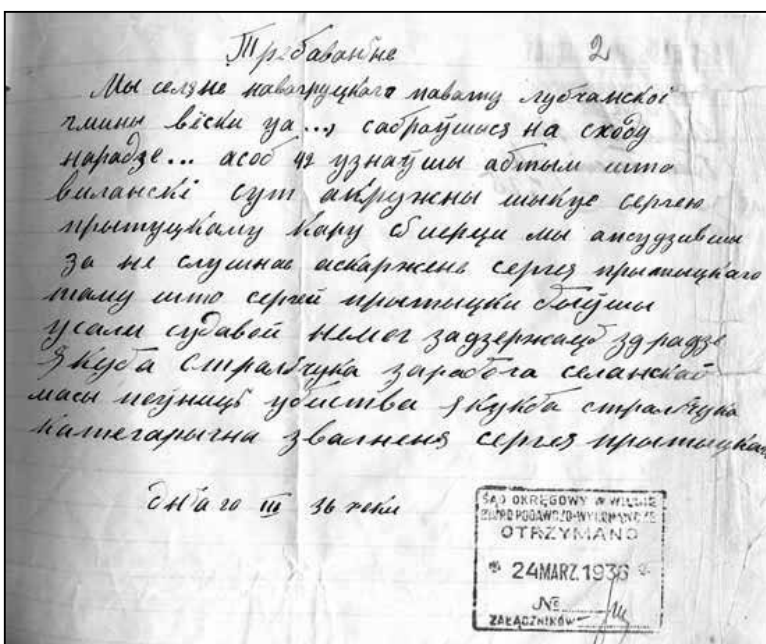 Требаванне
2
Мы селяне навагруцкаго павату лубчанскоі
гмины вёски ца..., сабраўшыся на сходу
нарадзе... асоб 42 узнаўшы абтым што
виланскі сут акружны шыкуе сергею
прытуцкаму кару сьмерци мы
за не слушнае аскаржене сергея прытыцкаго
таму што сергей прытыцки быўшы
усали судавой немог задзержаць здрадзе
Якуба стральчука заработа селанскай
масы убиства стральчука
категарычна звалненя сергея прытыцкаго
дня 20 III 36 року
SĄD OKRĘGOWY W WILNIE
BIURO PODAWCZO-WYKONAWCZE
OTRZYMANO
24 MARZ. 1936
№
ZAŁĄCZNIKÓW